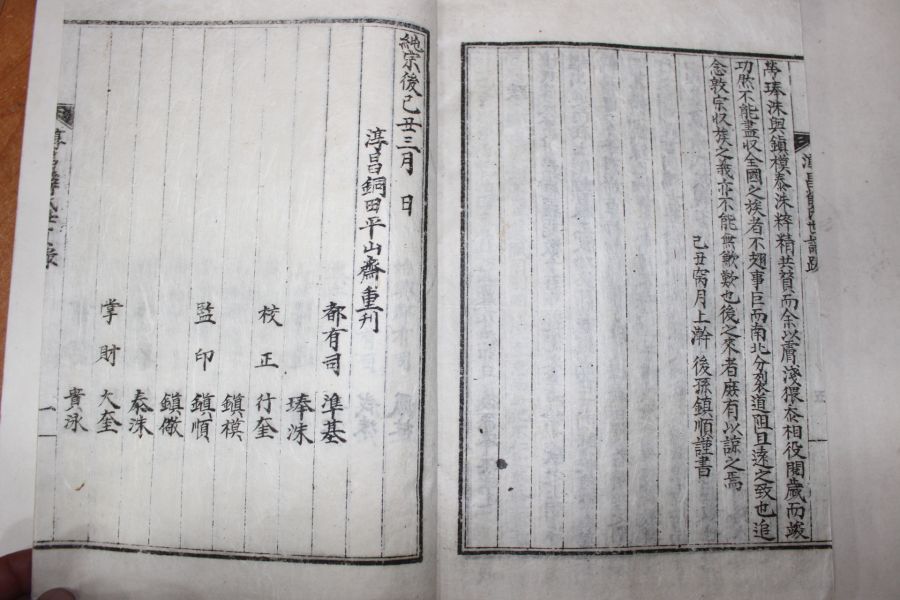 琫洙與鎭模泰洙粹精共贊而余以膚淺猥忝相役閱歲而竣
功然不能盡収全國之族者不翅事巨而南北分裂道阻且遠之致也追
念敦宗収族之義亦不能無歉歎也後之來者庶有以諒之焉
己丑 月上澣 後孫鎭順謹書
純宗後己丑三月 日
淳昌銅田平山齋重刊
都有司 準基
琫洙
校正 行奎
鎭模
監印 鎭順
鎭徹
泰洙
掌財 大奎
寶泳
五
一